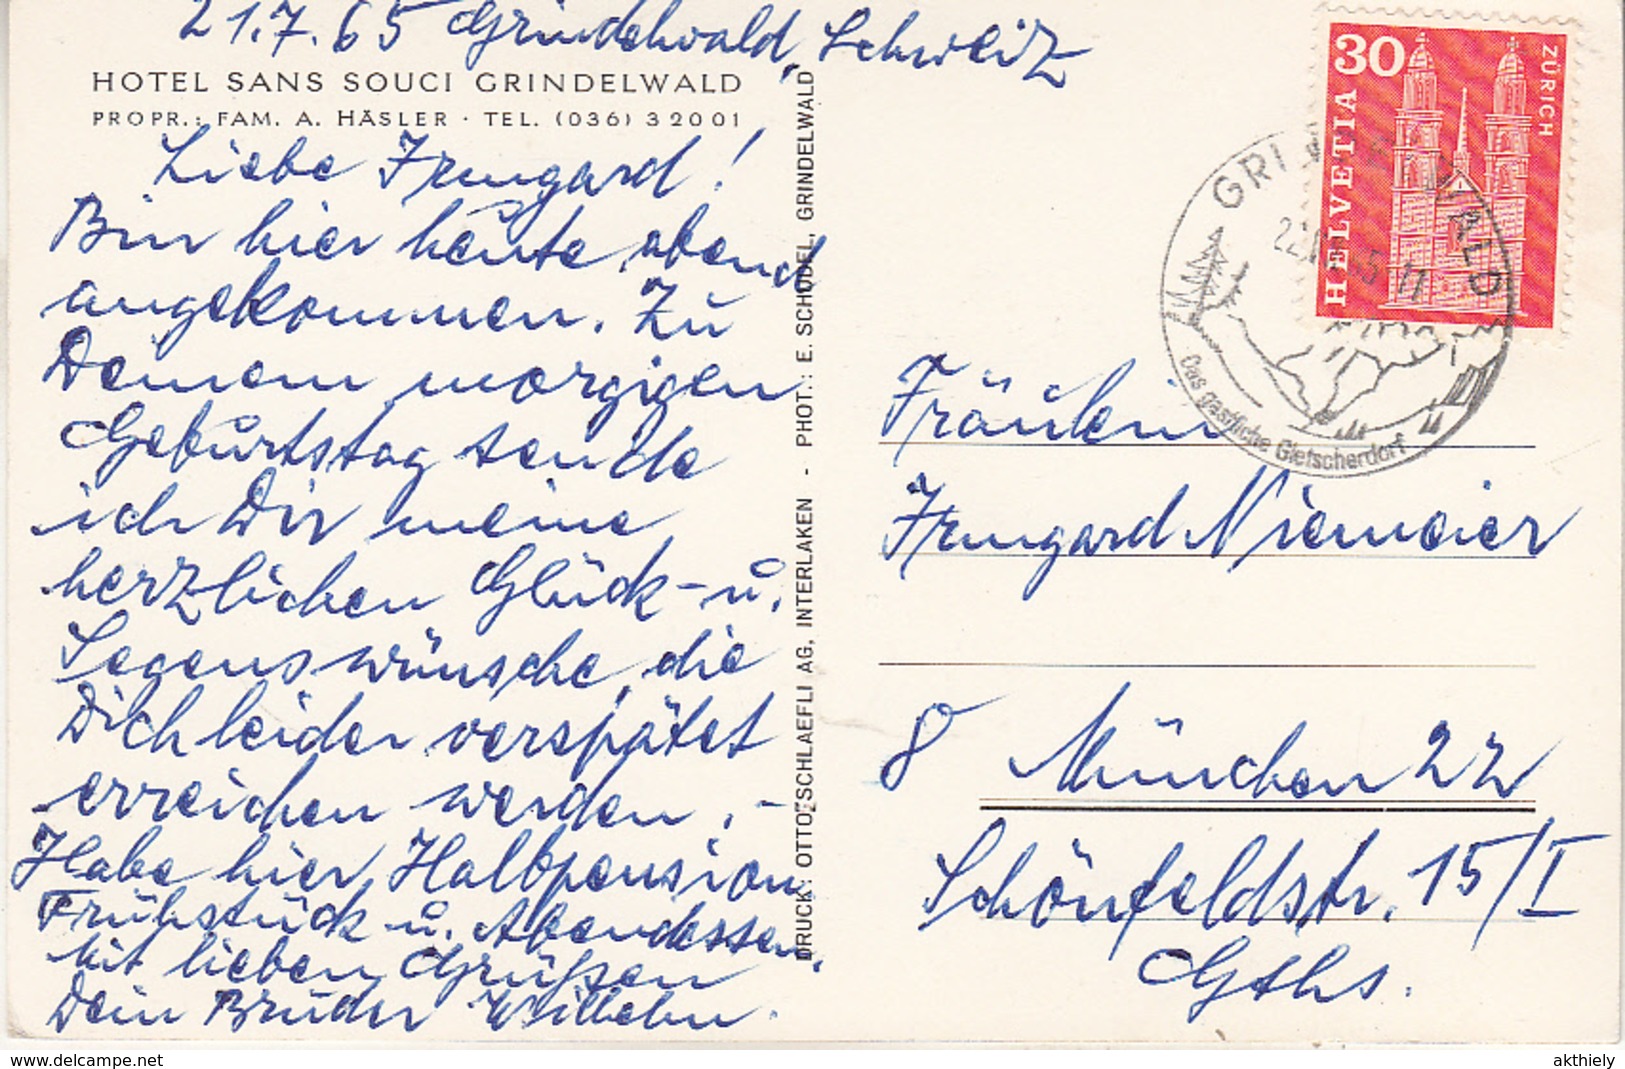 21.7.65 Grindelwald, Schweiz
HOTEL SANS SOUCI GRINDELWALD
PROPR.: FAM. A. HÄSLER · TEL. (036) 3 20 01
Liebe Irmgard!
Bin hier heute abend
angekommen. Zu
Deinem morgigen
Geburtstag sende
ich Dir meine
herzlichen Glück- u.
Segenswünsche, die
Dich leider verspätet
erreichen werden. -
Habe hier Halbpension
Frühstück u. Abendessen.
Mit lieben Grüßen
Dein Bruder Wilhelm.
DRUCK: OTTO SCHLAEFLI AG, INTERLAKEN - PHOT.: E. SCHUDEL, GRINDELWALD
30
HELVETIA
ZÜRICH
Das gastliche Gletscherdorf
Fräulein
Irmgard Niemeier
8 München 22
Schönfeldstr. 15/I
Gths.
www.delcampe.net
akthiely